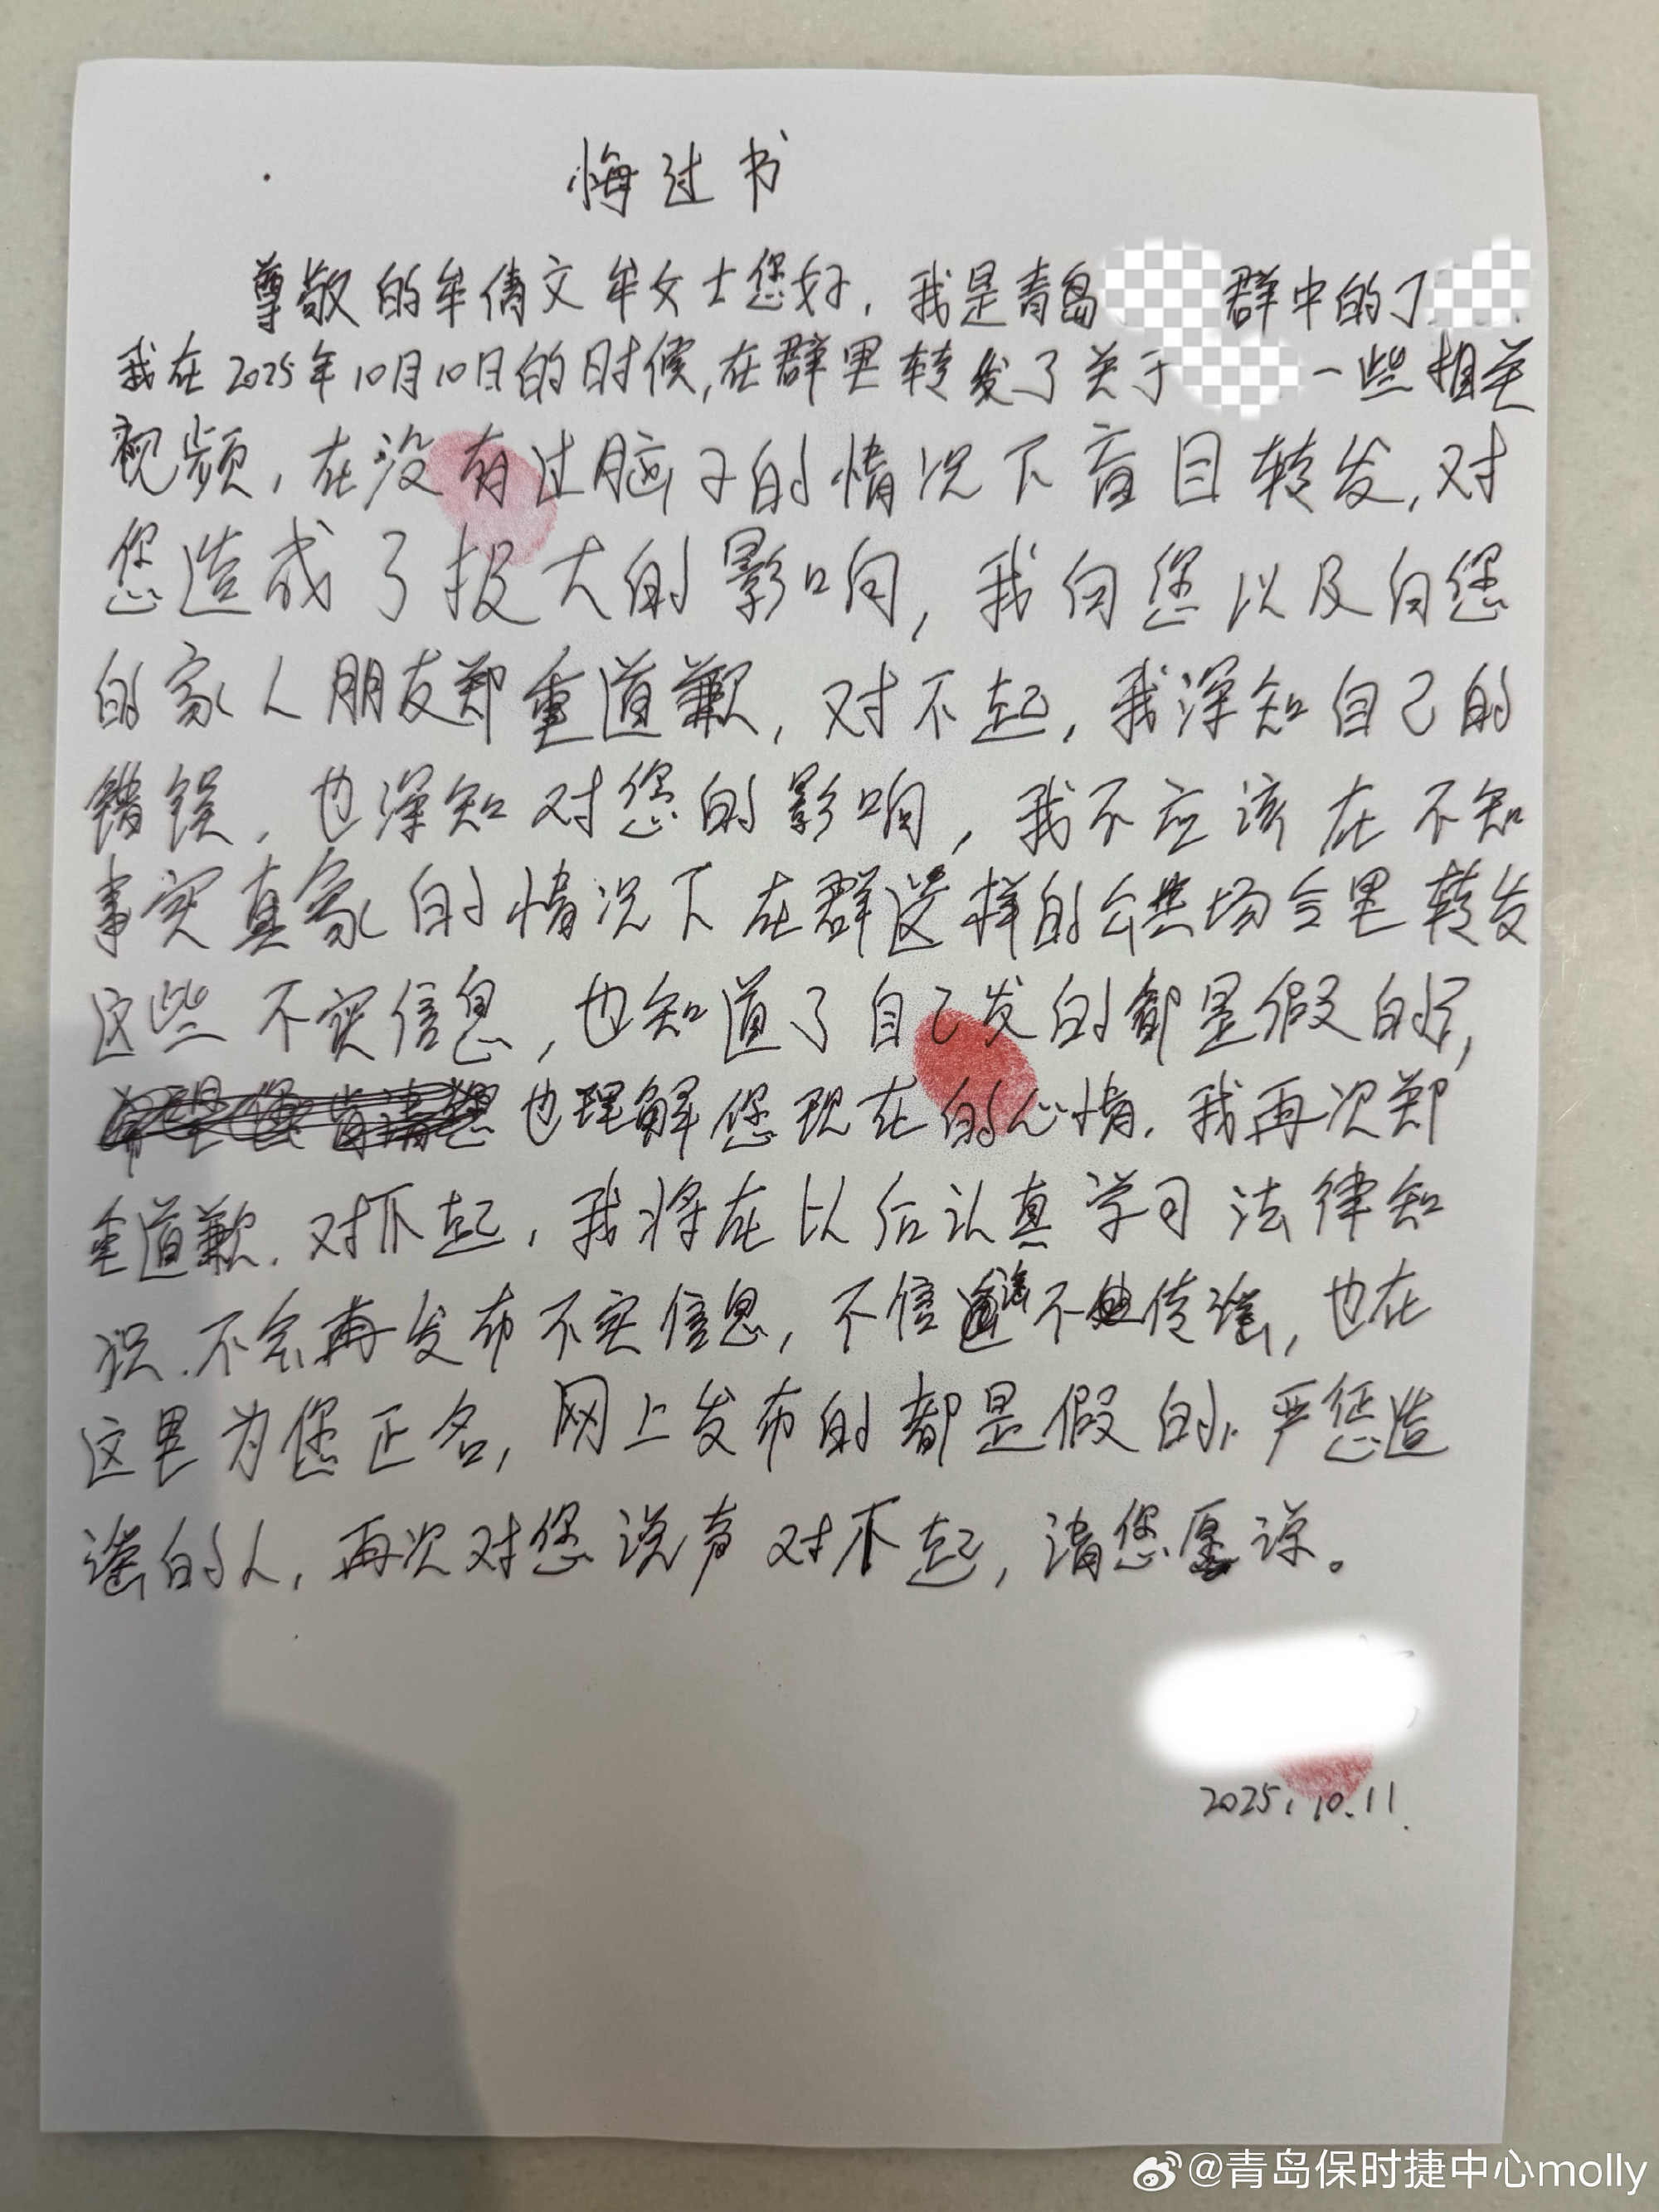 悔过书
尊敬的牟倩文牟女士您好，我是青岛 群中的丁
我在2025年10月10日的时候，在群里转发了关于 一些相关
视频，在没有过脑子的情况下盲目转发，对
您造成了极大的影响，我向您以及向您
的家人朋友郑重道歉，对不起，我深知自己的
错误，也深知对您的影响，我不应该在不知
事实真象的情况下在群这样的公共场合里转发
这些不实信息，也知道了自己发的都是假的，
也理解您现在的心情．我再次郑
重道歉．对不起，我将在以后认真学习法律知
识．不会再发布不实信息，不信谣不传谣，也在
这里为您正名，网上发布的都是假的．严惩造
谣的人，再次对您说声对不起，请您原谅。
2025.10.11
@青岛保时捷中心molly